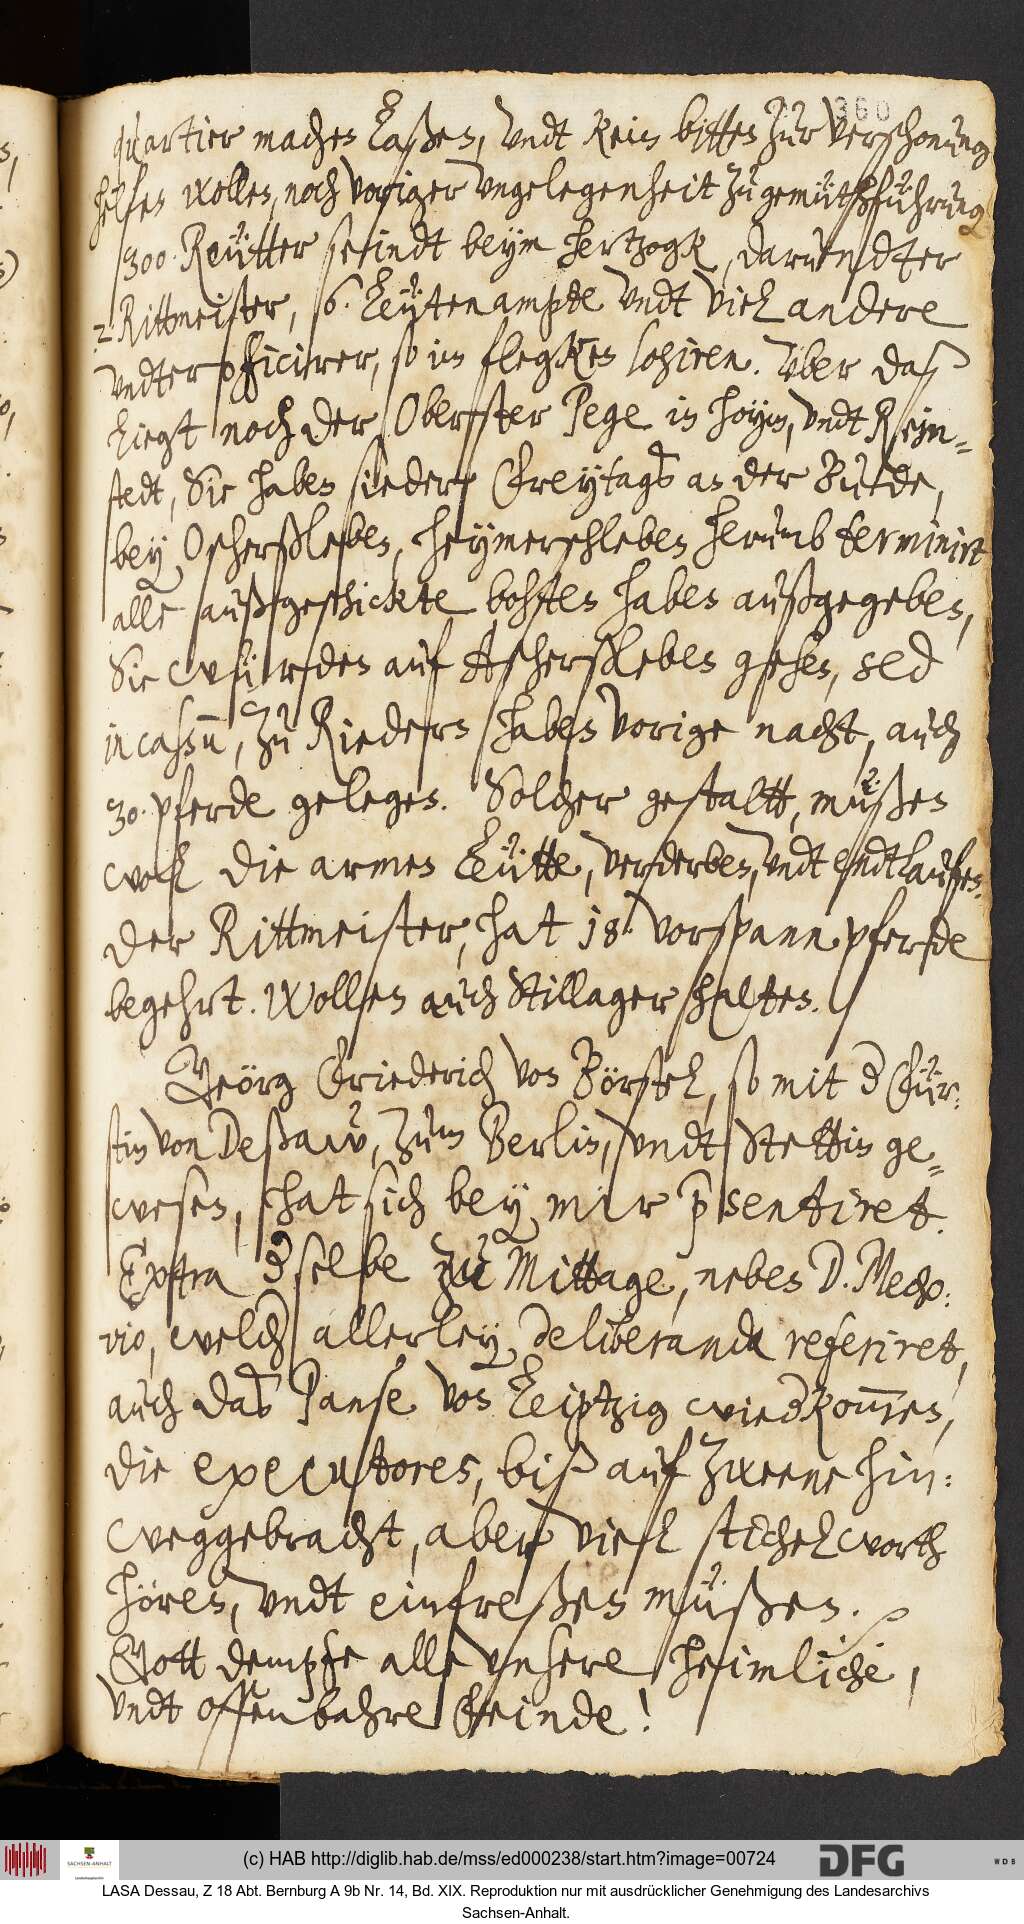 360
quartier machen laßen, undt kein bitten zur verschonung
helfen wollen, noch voriger ungelegenheit zu gemühtsführung
300 Reütter seindt beym hertzogk, darundter
2 Rittmeister, 6. Leütenampte undt viel andere
undter officirer, so im flegken lohiren. Über daß
liegt noch der Oberster Pege in Hoym, undt Rein-
stedt, Sie haben sieder Freytags an der Buhde,
bey Oscherßleben, Heymerschleben herumb terminirt
alle außgeschickte bohten haben außgegeben,
Sie würden auf Ascherßleben gehen, sed
in cassũ, Zu Riedern haben vorige nacht, auch
30. pferde gelegen. Solcher gestaltt, müßen
wol die armen Leütte, verderben, undt endtlaufen.
Der Rittmeister, hat 18. vorspann pferde
begehrt. Wollen auch Stillager halten.
Geörg Friederich von Börstel, so mit d Für:
stin von Deßaw, zum Berlin, undt Stettin ge-
wesen, hat sich bey mir p̃sentiret.
Extra dselbe zu Mittage, neben D. Mech:
vio, welch allerley deliberanda referiret,
auch das Panse von Leiptzig wiedkom̃en,
die executores, biß auf zweene hin:
weggebracht, aber viel stichel worth
hören, undt einfreßen müßen.
Gott dempfe alle unsere heimliche,
undt offenbahre Feinde!
(c) HAB http://diglib.hab.de/mss/ed000238/start.htm?image=00724
SACHSEN-ANHALT
DFG
WDB
LASA Dessau, Z 18 Abt. Bernburg A 9b Nr. 14, Bd. XIX. Reproduktion nur mit ausdrücklicher Genehmigung des Landesarchivs
Sachsen-Anhalt.